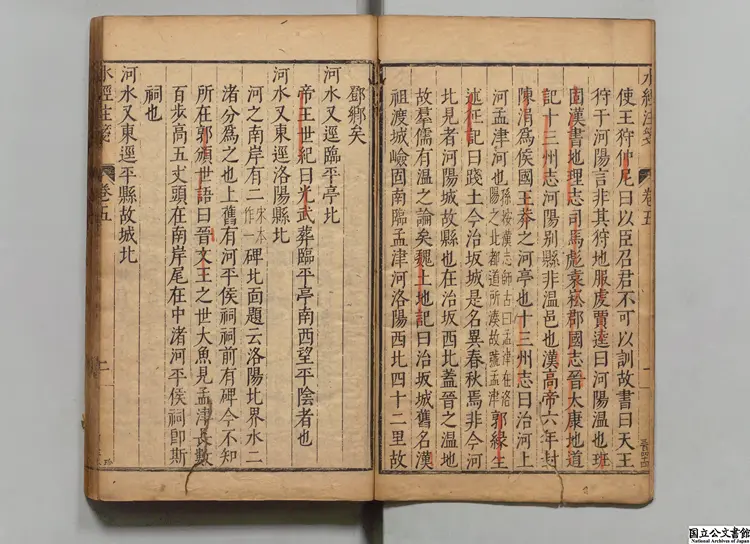 使王狩仲尼曰以臣召君不可以訓故書曰天王
狩于河陽言非其狩地服虔賈逵曰河陽溫也班
固漢書地理志司馬彪袁崧郡國志晉太康地道
記十三州志河陽別縣非溫邑也漢高帝六年封
陳涓爲侯國王莽之河亭也十三州志曰治河上
河孟津河也孫按漢志師古曰孟津在洛陽之北都道所湊故號孟津郭緣生
述征記曰踐土今冶坂城是名異春秋焉非今河
北見者河陽城故縣也在冶坂西北蓋晉之溫地
故羣儒有溫之論矣魏土地記曰冶坂城舊名漢
祖渡城嶮固南臨孟津河洛陽西北四十二里故
水經注箋
卷五
一
鄧鄉矣
河水又東逕臨平亭北
帝王世紀曰光武葬臨平亭南西望平陰者也
河水又東逕洛陽縣北
河之南岸有二宋本作一碑北面題云洛陽北界水二
渚分爲之也上舊有河平侯祠祠前有碑今不知
所在郭頒世語曰晉文王之世大魚見孟津長數
百步高五丈頭在南岸尾在中渚河平侯祠卽斯
祠也
河水又東逕平縣故城北
水經注箋
卷五
二
国立公文書館
National Archives of Japan